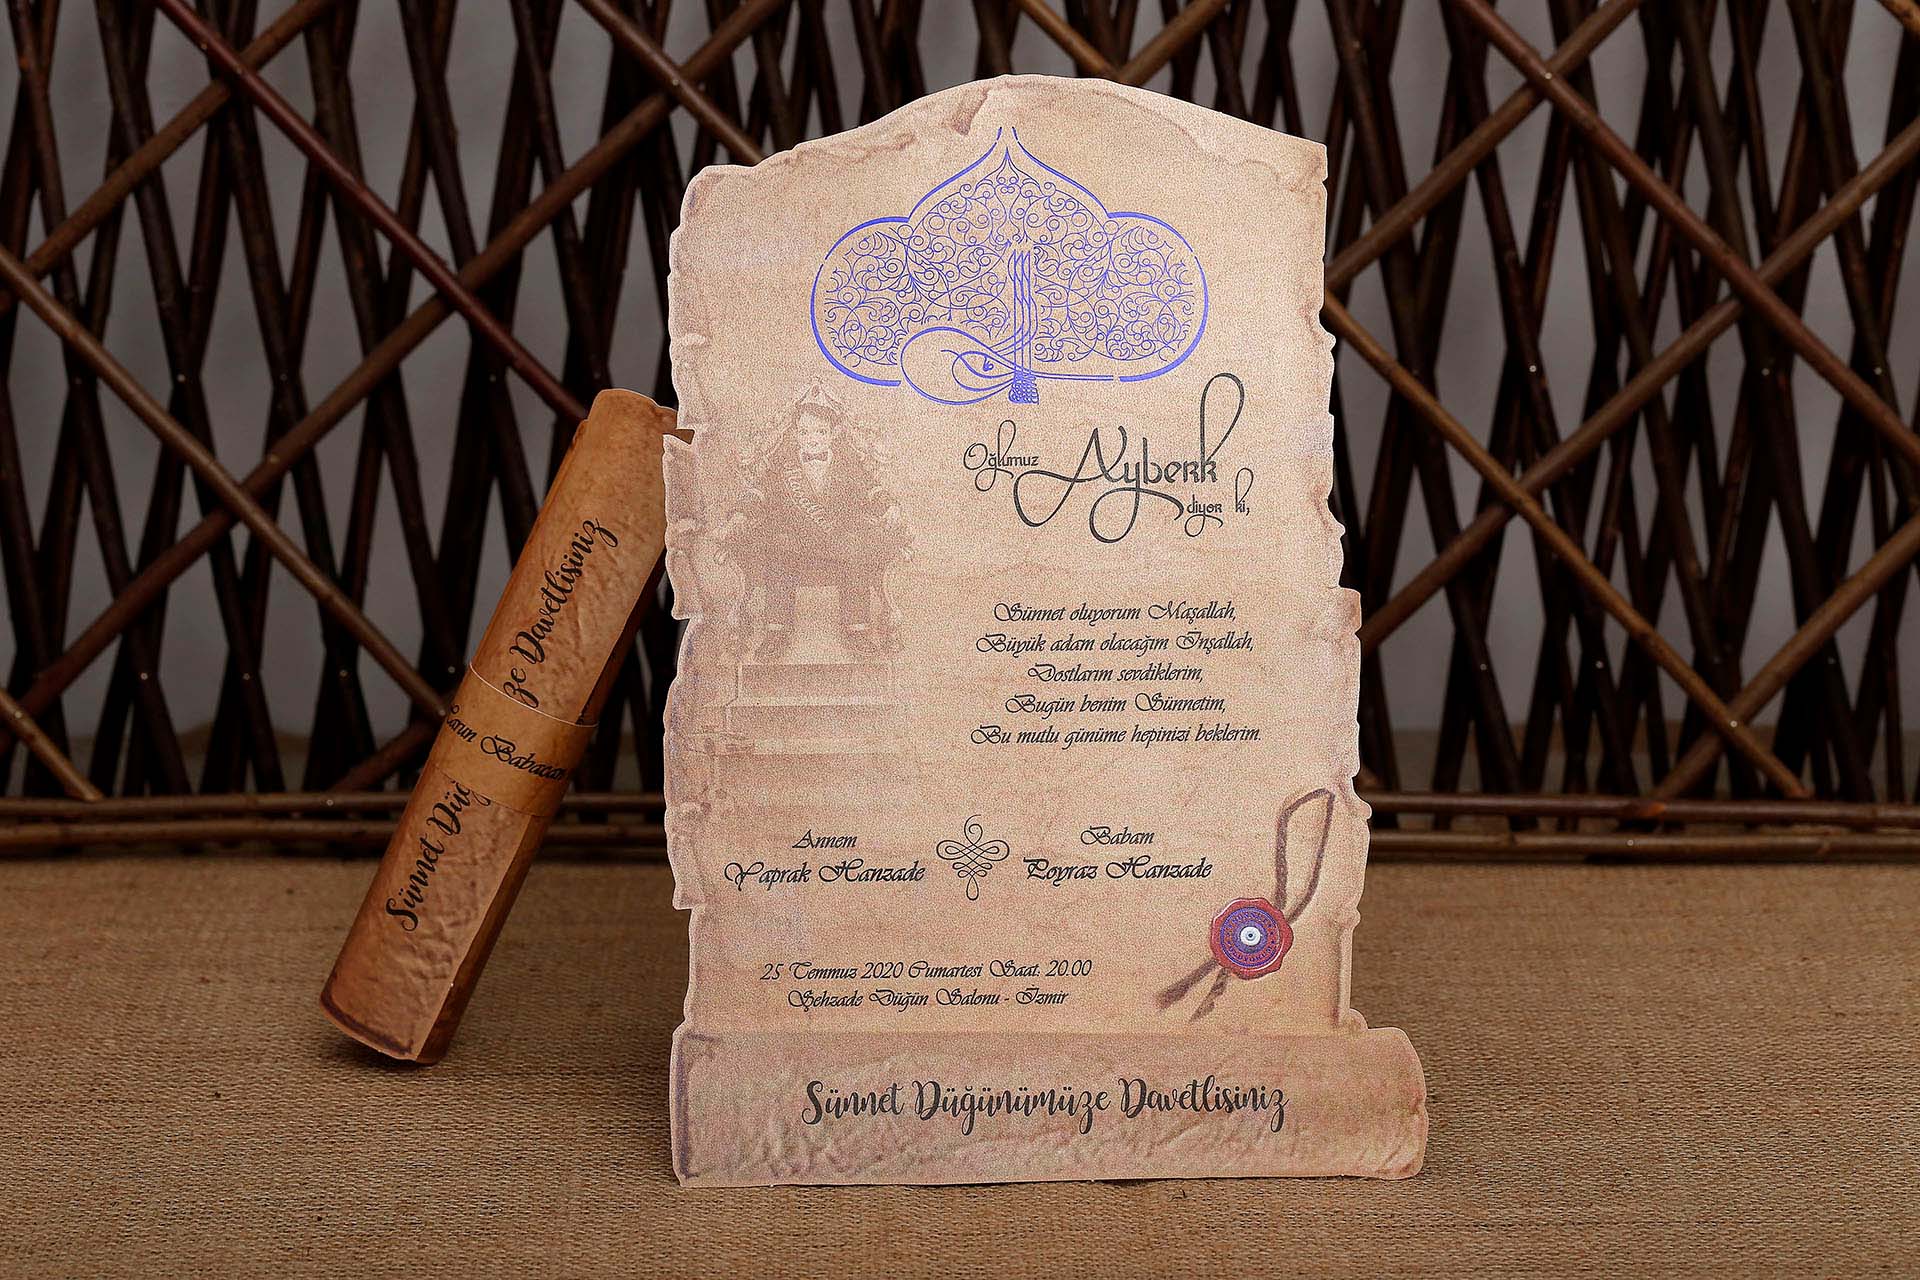 Oğlumuz Ayberk diyor ki,
Sünnet oluyorum Maşallah,
Büyük adam olacağım İnşallah,
Dostlarım sevdiklerim,
Bugün benim Sünnetim,
Bu mutlu günüme hepinizi beklerim.
Annem
Yaprak Hanzade
Babam
Poyraz Hanzade
25 Temmuz 2020 Cumartesi Saat: 20.00
Şehzade Düğün Salonu - İzmir
Sünnet Düğünümüze Davetlisiniz
Maşallah
Sünnet Düğ ze Davetlisiniz
Babacan